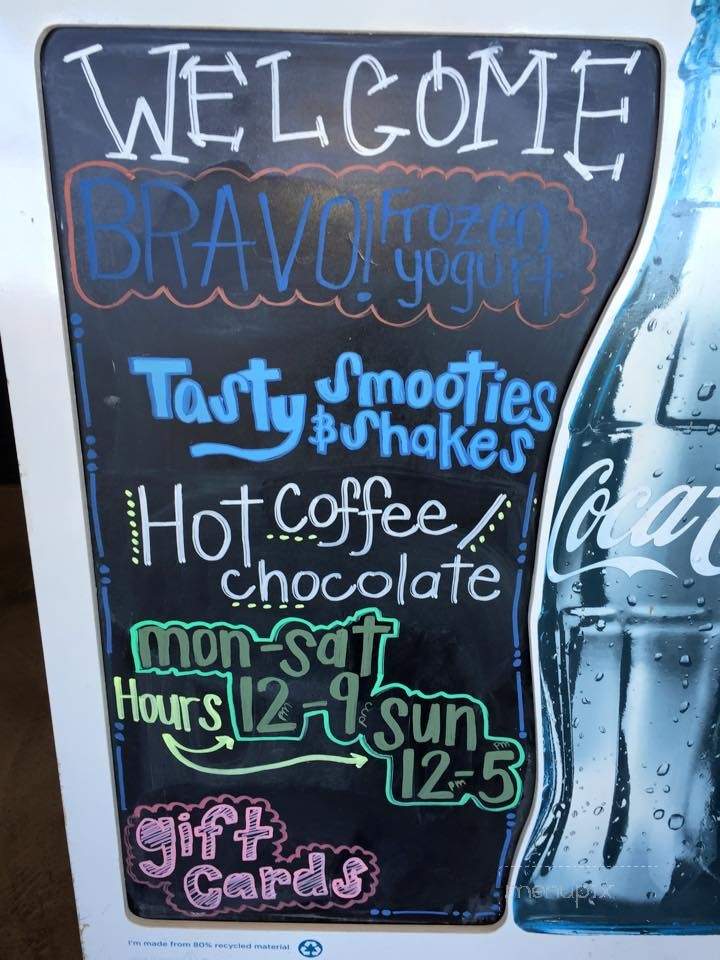 WELCOME
BRAVO! Frozen
yogurt
Tasty Smooties
& Shakes
Hot Coffee /
chocolate
mon-sat
Hours 12pm-9pm
sun
12pm-5pm
gift
cards
Coca-C
menupix
I'm made from 80% recycled material